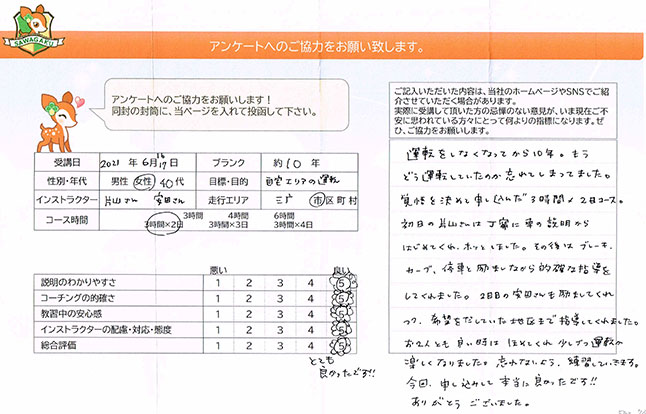 SAWAGAKU
アンケートへのご協力をお願い致します。
アンケートへのご協力をお願いします！
同封の封筒に、当ページを入れて投函して下さい。
ご記入いただいた内容は、当社のホームページやSNSでご紹介させていただく場合があります。
実際に受講して頂いた方の忌憚のない意見が、いま現在ご不安に思われている方々にとって何よりの指標になります。ぜひ、ご協力をお願いします。
受講日 2021 年 6月 16 17 日 ブランク 約 10 年
性別・年代 男性 女性 40代 目標・目的 自宅エリアの運転
インストラクター 片山さん 安田さん 走行エリア 三戸 市区町村
コース時間 3時間 4時間 6時間
3時間×2日 3時間×3日 3時間×4日
悪い 良い
説明のわかりやすさ 1 2 3 4 5
コーチングの的確さ 1 2 3 4 5
教習中の安心感 1 2 3 4 5
インストラクターの配慮・対応・態度 1 2 3 4 5
総合評価 1 2 3 4 5
とても
良かったです!!
運転をしなくなってから10年。もう
どう運転していたのか忘れてしまってました。
覚悟を決めて申し込んだ3時間×2日コース。
初日の片山さんは丁寧に車の説明から
はじめてくれ、ホッとしました。その後はブレーキ、
カーブ、停車と励ましながら的確な指導を
してくれました。2日目の安田さんも励ましてくれ
つつ、希望をだしていた地区まで指導してくれました。
お2人とも良い時はほめてくれ 少しづつ運転が
楽しくなりました。忘れないよう、練習していきます。
今回、申し込みして本当に良かったです!!
ありがとうございました。